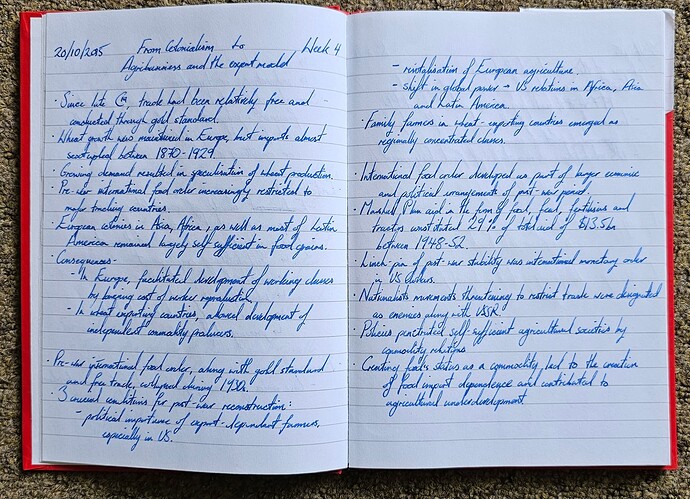 20/10/2015 From Colonialism to Week 4
Agribusiness and the export model
· Since late C19, trade had been relatively free and
conducted through gold standard.
· Wheat growth was maintained in Europe, but imports almost
between 1870-1929.
· Growing demand resulted in specialisation of wheat production.
· Pre-war international food order increasingly restricted to
major trading countries.
· European colonies in Asia, Africa, as well as most of Latin
American remained largely self-sufficient in food grains.
· Consequences-
- In Europe, facilitated development of working classes
by cost of worker reproduction.
- In wheat exporting countries, allowed development of
independent commodity producers.
· Pre-war international food order, along with gold standard
and free trade, collapsed during 1930s.
· 3 crucial conditions for post-war reconstruction:
- political importance of export-dependant farmers,
especially in US.
- revitalisation of European agriculture.
- shift in global power → US relations in Africa, Asia
and Latin America.
· Family farmers in wheat-exporting countries emerged as
regionally concentrated classes.
· International food order developed as part of larger economic
and political arrangements of post-war period.
· Marshall Plan aid in the form of food, feed, fertilisers and
tractors constituted 29% of total aid of $13.5bn
between 1948-52.
· Linch-pin of post-war stability was international monetary order
in US dollars.
· Nationalists movements threatening to restrict trade were designated
as enemies along with USSR.
· Policies penetrated self-sufficient agricultural societies by
commodity relations
· Creating food's status as a commodity, led to the creation
of food import dependence and contributed to
agricultural underdevelopment